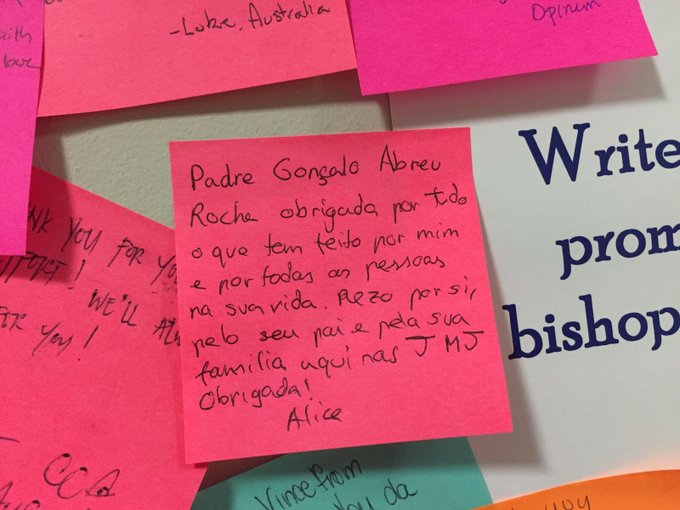 aith
love
-Luke, Australia
Opinum
Write
prom
bishop
Padre Gonçalo Abreu
Rocha obrigada por tudo
o que tem feito por mim
e por todas as pessoas
na sua vida. Rezo por si,
pelo seu pai e pela sua
familia aqui nas JMJ
Obrigada!
Alice
NK YOU FOR YO
PPORT!
WE'LL AL
FOR YOU!
Vince from